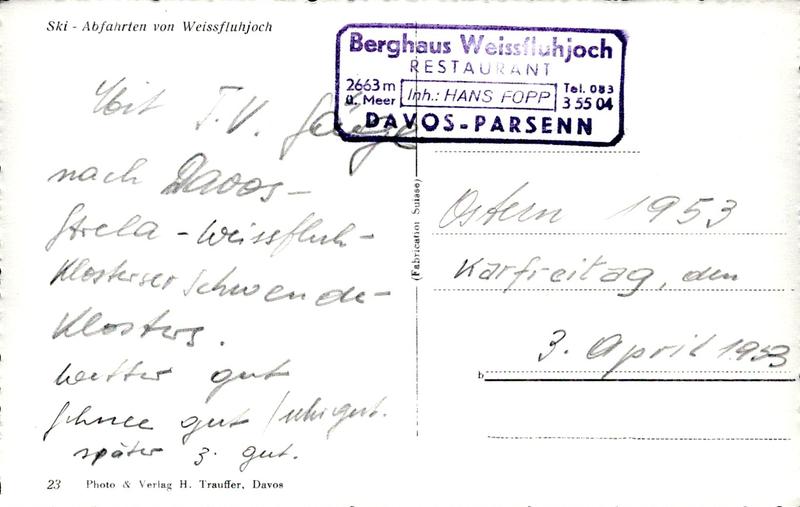 Ski - Abfahrten von Weissfluhjoch
Berghaus Weissfluhjoch
RESTAURANT
2663 m
ü. Meer
Inh.: HANS FOPP
Tel. 083
3 55 04
DAVOS-PARSENN
Mit T.V.
nach Davos-
Strela - Weissfluh-
Klosterser Schwende-
Klosters.
Wetter gut
Schnee gut
später z. gut.
(Fabrication Suisse)
Ostern 1953
Karfreitag, den
3. April 1953
b
23 Photo & Verlag H. Trauffer, Davos